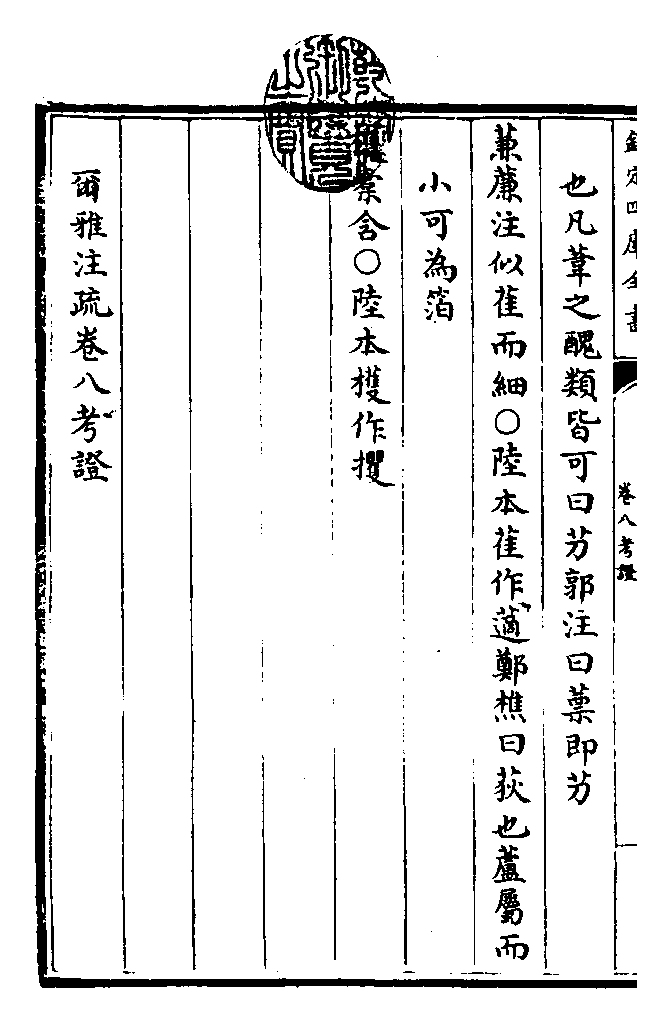 欽定四庫全書
卷八考證
也凡葦之醜類皆可曰芀郭注曰葉即芀
蒹薕注似萑而細○陸本萑作薖鄭樵曰荻也蘆屬而
小可為箔
橐含○陸本擭作攫
爾雅注疏卷八考證